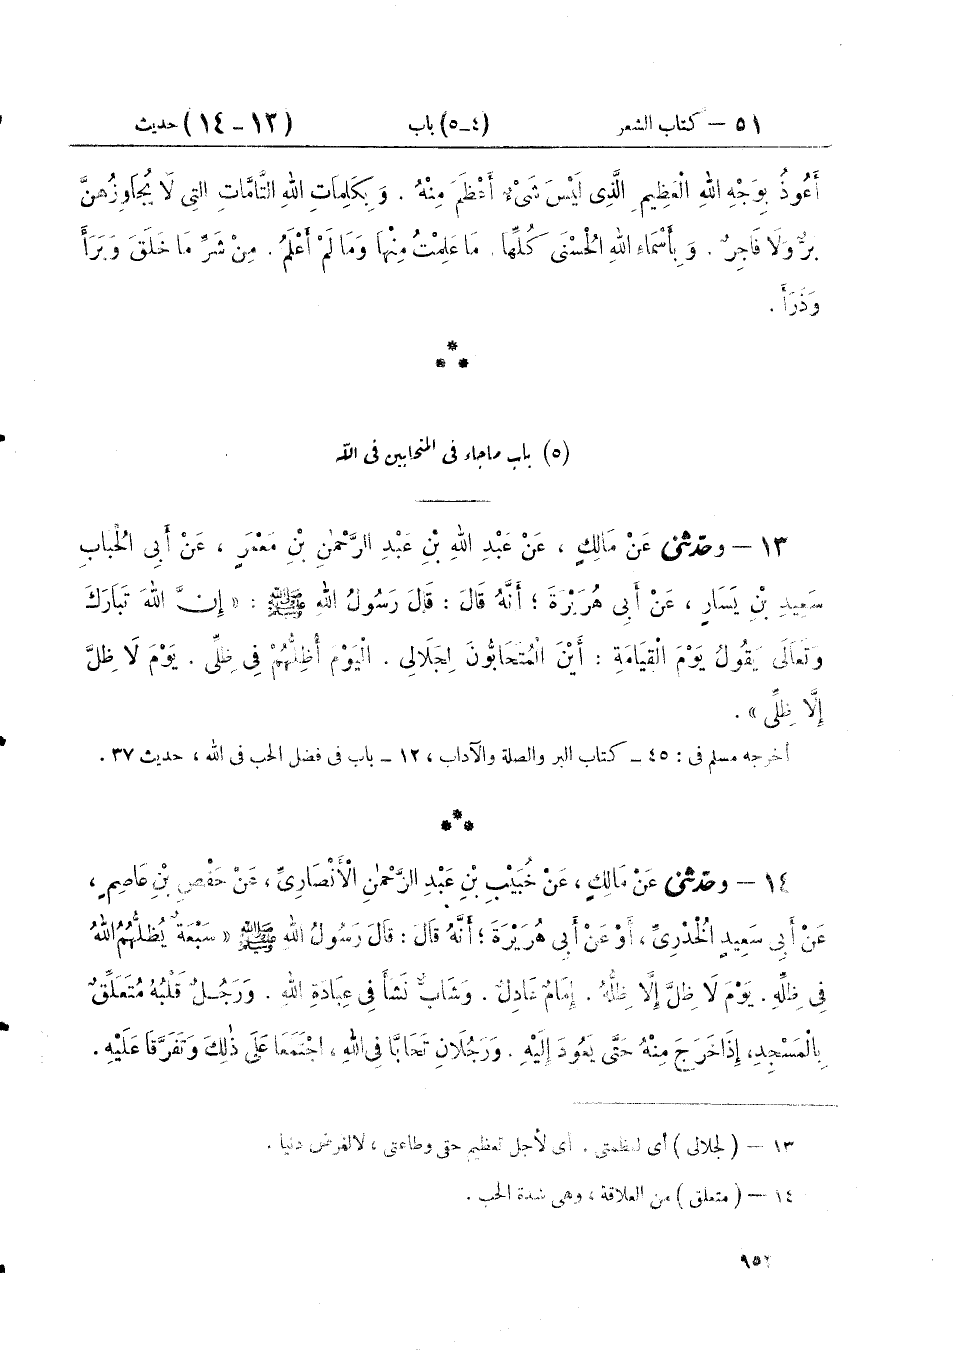 ٥١ – كتاب الشعر (٤–٥) باب (١٣–١٤) حديث
أَعُوذُ بِوَجْهِ اللهِ الْعَظِيمِ الَّذِى لَيْسَ شَىْءٌ أَعْظَمَ مِنْهُ . وَبِكَلِمَاتِ اللهِ التَّامَّاتِ الَّتِى لَا يُجَاوِزُهُنَّ
بَرٌّ وَلَا فَاجِرٌ . وَبِأَسْمَاءِ اللهِ الْحُسْنَى كُلِّهَا . مَا عَلِمْتُ مِنْهَا وَمَا لَمْ أَعْلَمْ . مِنْ شَرِّ مَا خَلَقَ وَبَرَأَ
وَذَرَأَ .
(٥) باب ماجاء فى المتحابين فى الله
١٣ – وحدّثنى عَنْ مَالِكٍ ، عَنْ عَبْدِ اللهِ بْنِ عَبْدِ الرَّحْمٰنِ بْنِ مَعْمَرٍ ، عَنْ أَبِى الْحُبَابِ
سَعِيدِ بْنِ يَسَارٍ ، عَنْ أَبِى هُرَيْرَةَ ؛ أَنَّهُ قَالَ : قَالَ رَسُولُ اللهِ ﷺ : « إِنَّ اللهَ تَبَارَكَ
وَتَعَالَى يَقُولُ يَوْمَ الْقِيَامَةِ : أَيْنَ الْمُتَحَابُّونَ لِجَلَالِى . الْيَوْمَ أُظِلُّهُمْ فِى ظِلِّى . يَوْمَ لَا ظِلَّ
إِلَّا ظِلِّى » .
أخرجه مسلم فى : ٤٥ – كتاب البر والصلة والآداب ، ١٢ – باب فى فضل الحب فى الله ، حديث ٣٧ .
١٤ – وحدّثنى عَنْ مَالِكٍ ، عَنْ خُبَيْبِ بْنِ عَبْدِ الرَّحْمٰنِ الْأَنْصَارِىِّ ، عَنْ حَفْصِ بْنِ عَاصِمٍ ،
عَنْ أَبِى سَعِيدٍ الْخُدْرِىِّ ، أَوْ عَنْ أَبِى هُرَيْرَةَ ؛ أَنَّهُ قَالَ : قَالَ رَسُولُ اللهِ ﷺ « سَبْعَةٌ يُظِلُّهُمُ اللهُ
فِى ظِلِّهِ . يَوْمَ لَا ظِلَّ إِلَّا ظِلُّهُ . إِمَامٌ عَادِلٌ . وَشَابٌّ نَشَأَ فِى عِبَادَةِ اللهِ . وَرَجُلٌ قَلْبُهُ مُتَعَلِّقٌ
بِالْمَسْجِدِ ، إِذَا خَرَجَ مِنْهُ حَتَّى يَعُودَ إِلَيْهِ . وَرَجُلَانِ تَحَابَّا فِى اللهِ ، اجْتَمَعَا عَلَى ذٰلِكَ وَتَفَرَّقَا عَلَيْهِ .
١٣ – (لجلالى) أى لعظمتى . أى لأجل تعظيم حقى وطاعتى ، لا لغرض دنيا .
١٤ – (متعلق) من العلاقة ، وهى شدة الحب .
٩٥٢